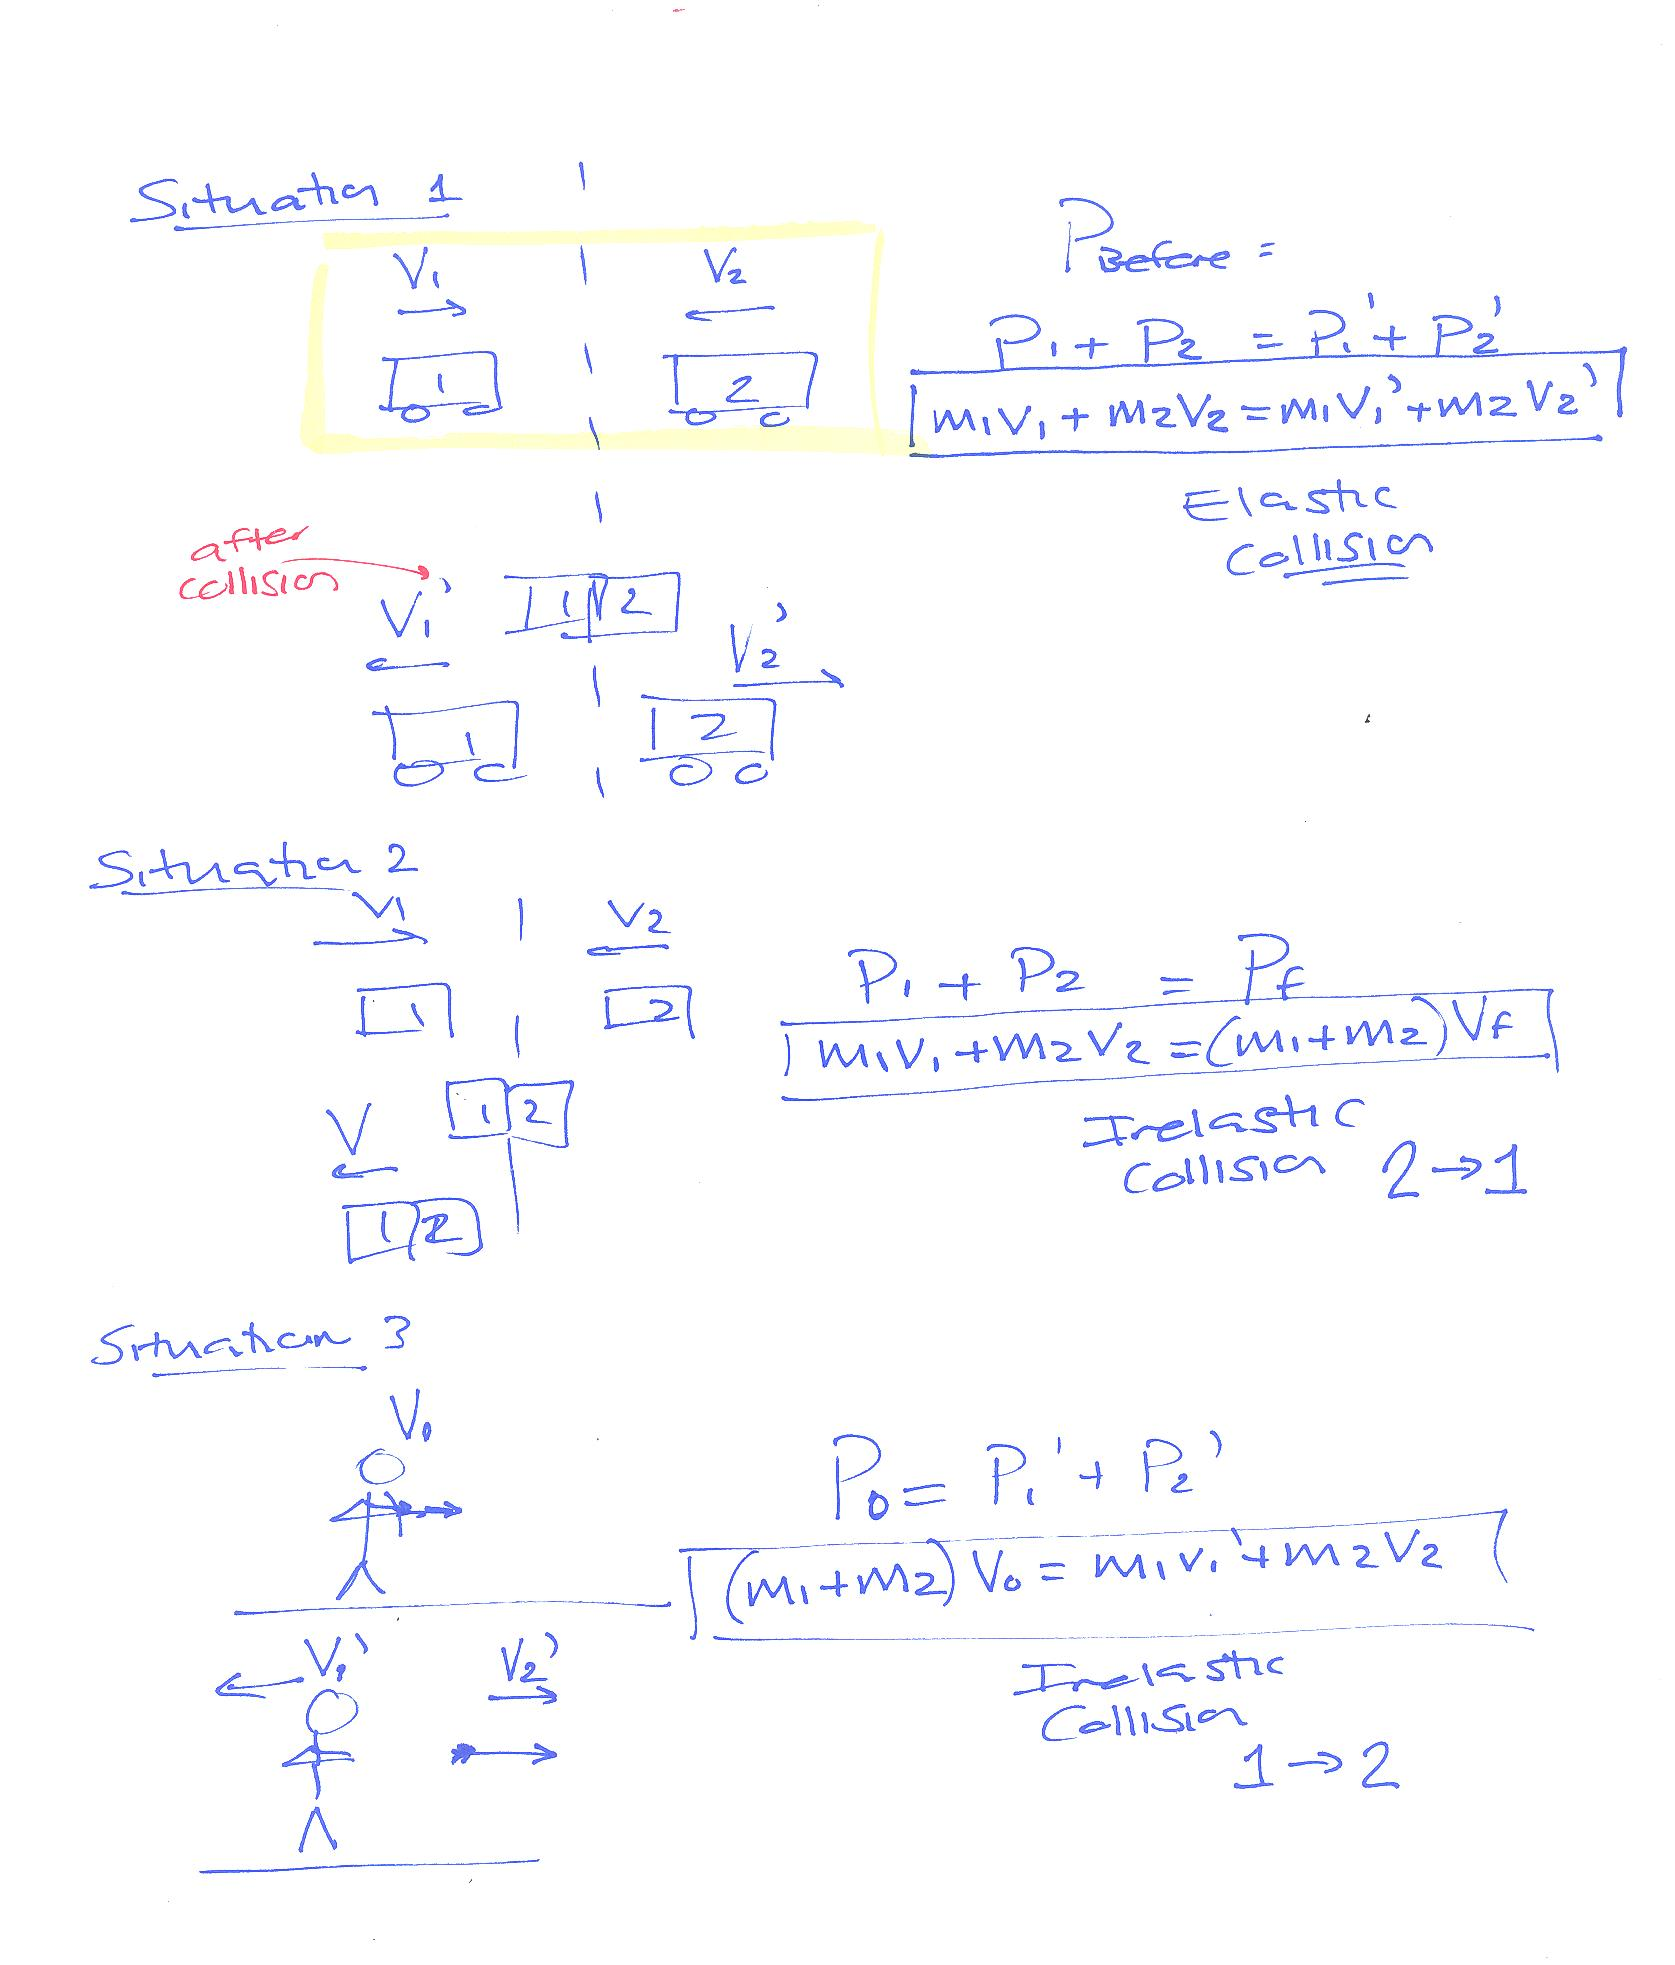 Situation 1
V1
V2
1
2
PBefore =
P1 + P2 = P1' + P2'
m1V1 + m2V2 = m1V1' + m2V2'
Elastic
Collision
after
collision
V1'
1 2
V2'
1
2
Situation 2
V1
V2
1
2
P1 + P2 = Pf
m1V1 + m2V2 = (m1+m2)Vf
Inelastic
Collision 2→1
1 2
V
1 2
Situation 3
V0
P0 = P1' + P2'
(m1+m2) V0 = m1V1' + m2V2
V1'
V2'
Inelastic
Collision
1→2